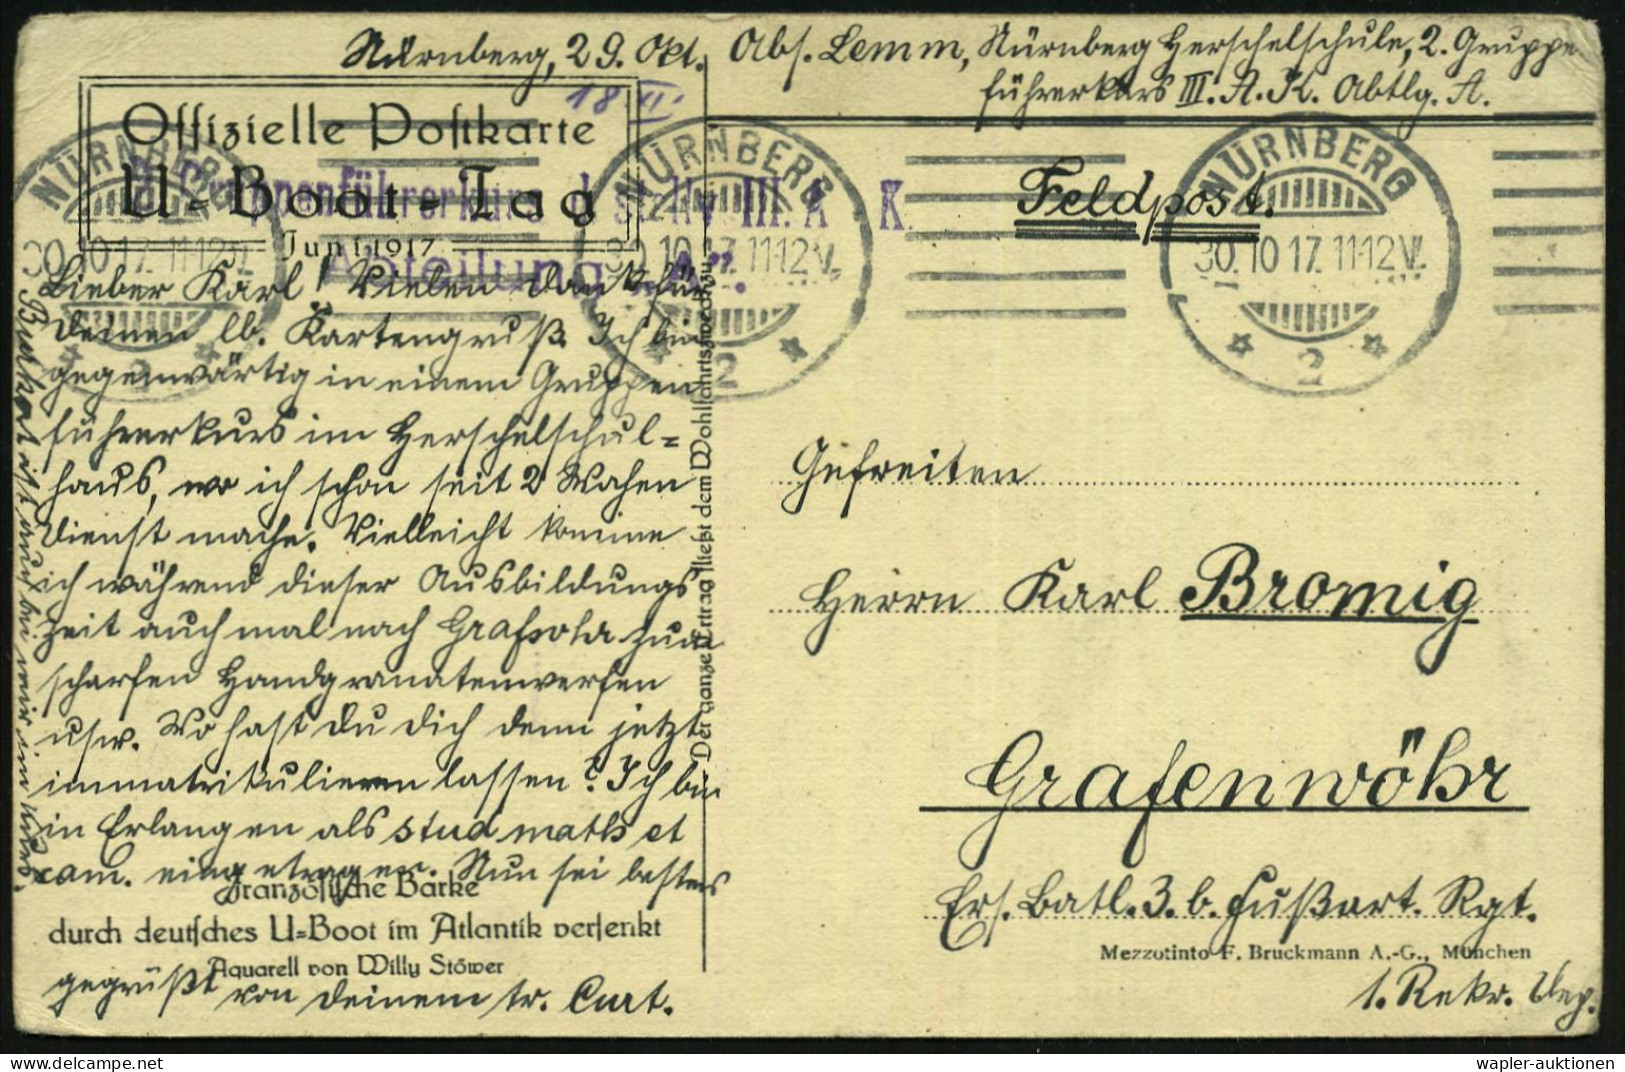 Nürnberg, 29. Okt.
Abs. Lemm, Nürnberg Herschelschule, 2. Gruppen
führerkurs III. A. K. Abtlg. A.
18 II.
Offizielle Postkarte
U-Boot-Tag
Juni 1917
Gruppenführerkurs d. stellv. III. A. K.
Abteilung „A".
NÜRNBERG
30.10.17. 11-12 V.
2
NÜRNBERG
30.10.17. 11-12 V.
2
NÜRNBERG
30.10.17. 11-12 V.
2
Feldpost.
Lieber Karl! Vielen Dank für
Deinen lb. Kartengruß. Ich bin
gegenwärtig in einem Gruppen
führerkurs im Herschelschul=
haus, wo ich schon seit 2 Wochen
Dienst mache. Vielleicht komme
ich während dieser Ausbildungs
zeit auch mal nach Grafwöhr zum
scharfen Handgranatenwerfen
usw. Wo hast Du Dich denn jetzt
immatrikulieren lassen? Ich bin
in Erlangen als stud math et
cam. eingetragen. Nun sei bestens
gegrüßt von Deinem tr. Curt.
ist auch bei mir im Kurs.
Französische Barke
durch deutsches U-Boot im Atlantik versenkt
Aquarell von Willy Stöwer
Der ganze Ertrag fließt dem Wohlfahrtszweck zu.
Gefreiten
Herrn Karl Bromig
Grafenwöhr
Ers. Batl. 3. b. Fußart. Rgt.
Mezzotinto F. Bruckmann A.-G., München
1. Rekr. Dep.
wapler-auktionen